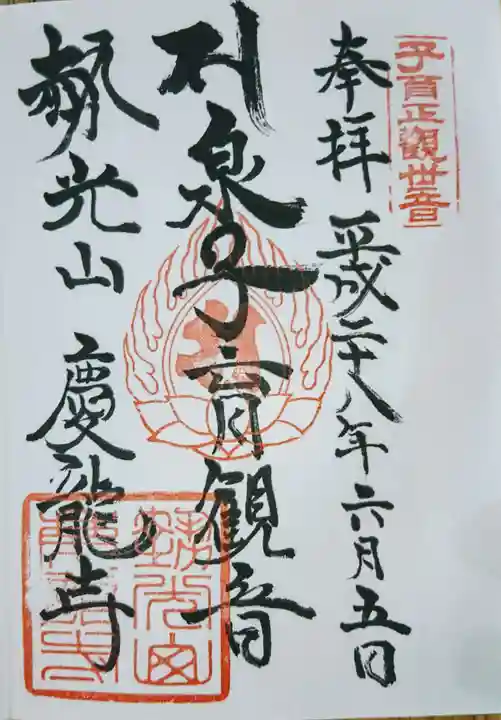 子育正觀世音
奉拝 平成二十八年六月五日
利泉子育観音
勢光山 慶龍寺